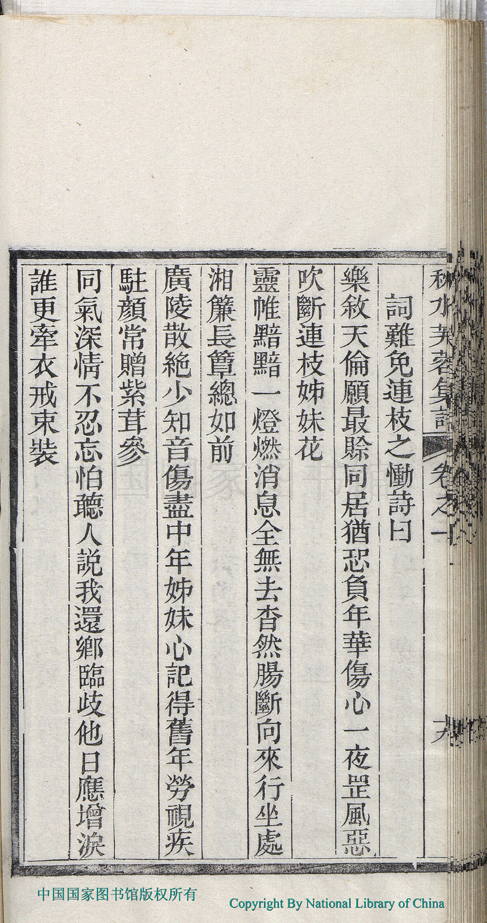 秋水芙蓉集詩 卷之十
詞難免連枝之慟詩曰
樂敘天倫願最賒同居猶恐負年華傷心一夜罡風惡
吹斷連枝姊妹花
靈帷黯黯一燈燃消息全無去杳然腸斷向來行坐處
湘簾長簟總如前
廣陵散絶少知音傷盡中年姊妹心記得舊年勞視疾
駐顏常贈紫茸參
同氣深情不忍忘怕聽人説我還鄉臨歧他日應增淚
誰更牽衣戒束裝
中国国家图书馆版权所有
Copyright By National Library of China